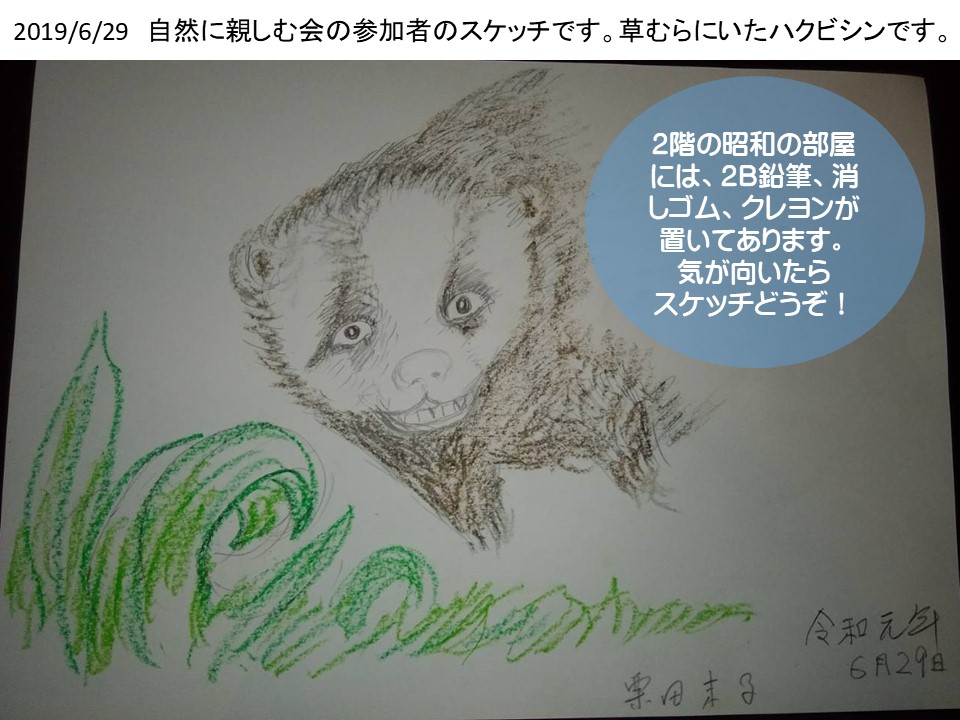 2019/6/29 自然に親しむ会の参加者のスケッチです。草むらにいたハクビシンです。
2階の昭和の部屋
には、2B鉛筆、消
しゴム、クレヨンが
置いてあります。
気が向いたら
スケッチどうぞ！
令和元年
6月29日